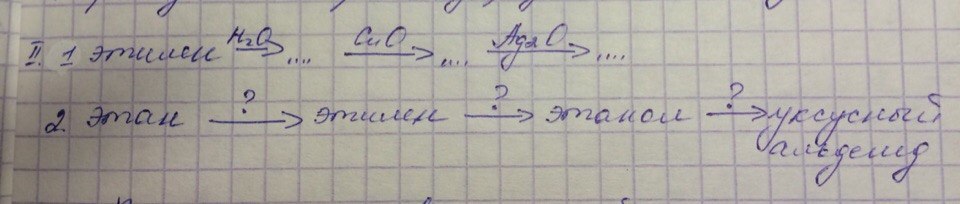 II. 1 этилен H₂O→ .... CuO→ .... Ag₂O→ ....
2. этан ?→ этилен ?→ этанол ?→ уксусный
альдегид